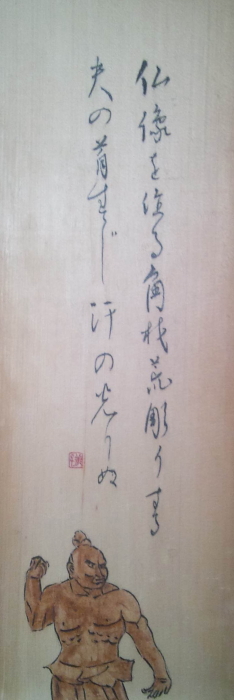 仏像を る角材荒彫りする
夫の首すじ汗の光りぬ